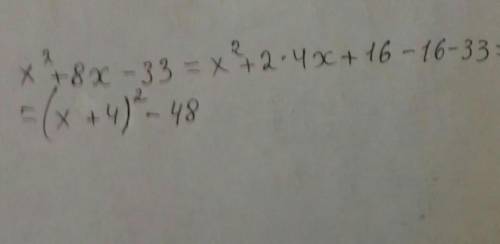 x² + 8x - 33 = x² + 2 · 4x + 16 - 16 - 33 =
= (x + 4)² - 48